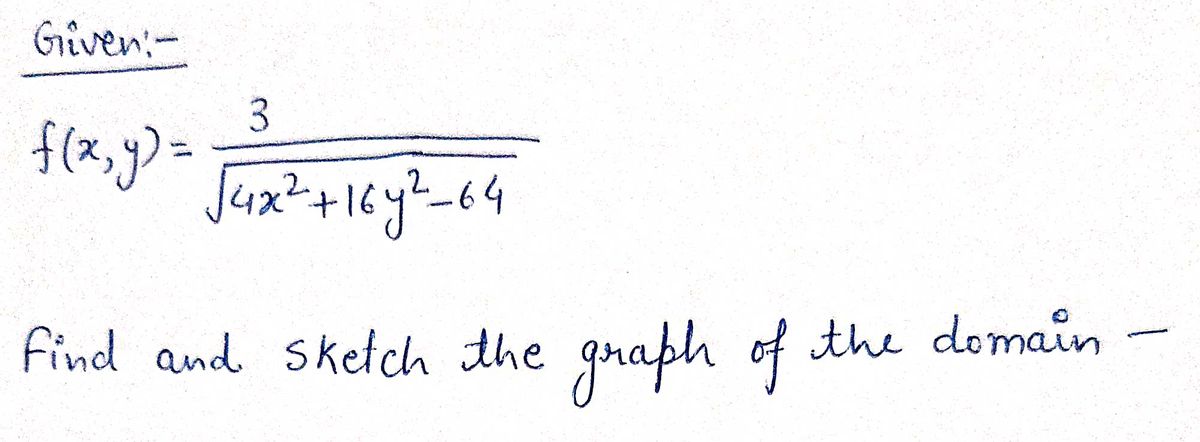 Given:-
f(x,y) = 3 / √(4x²+16y²-64)
Find and sketch the graph of the domain -